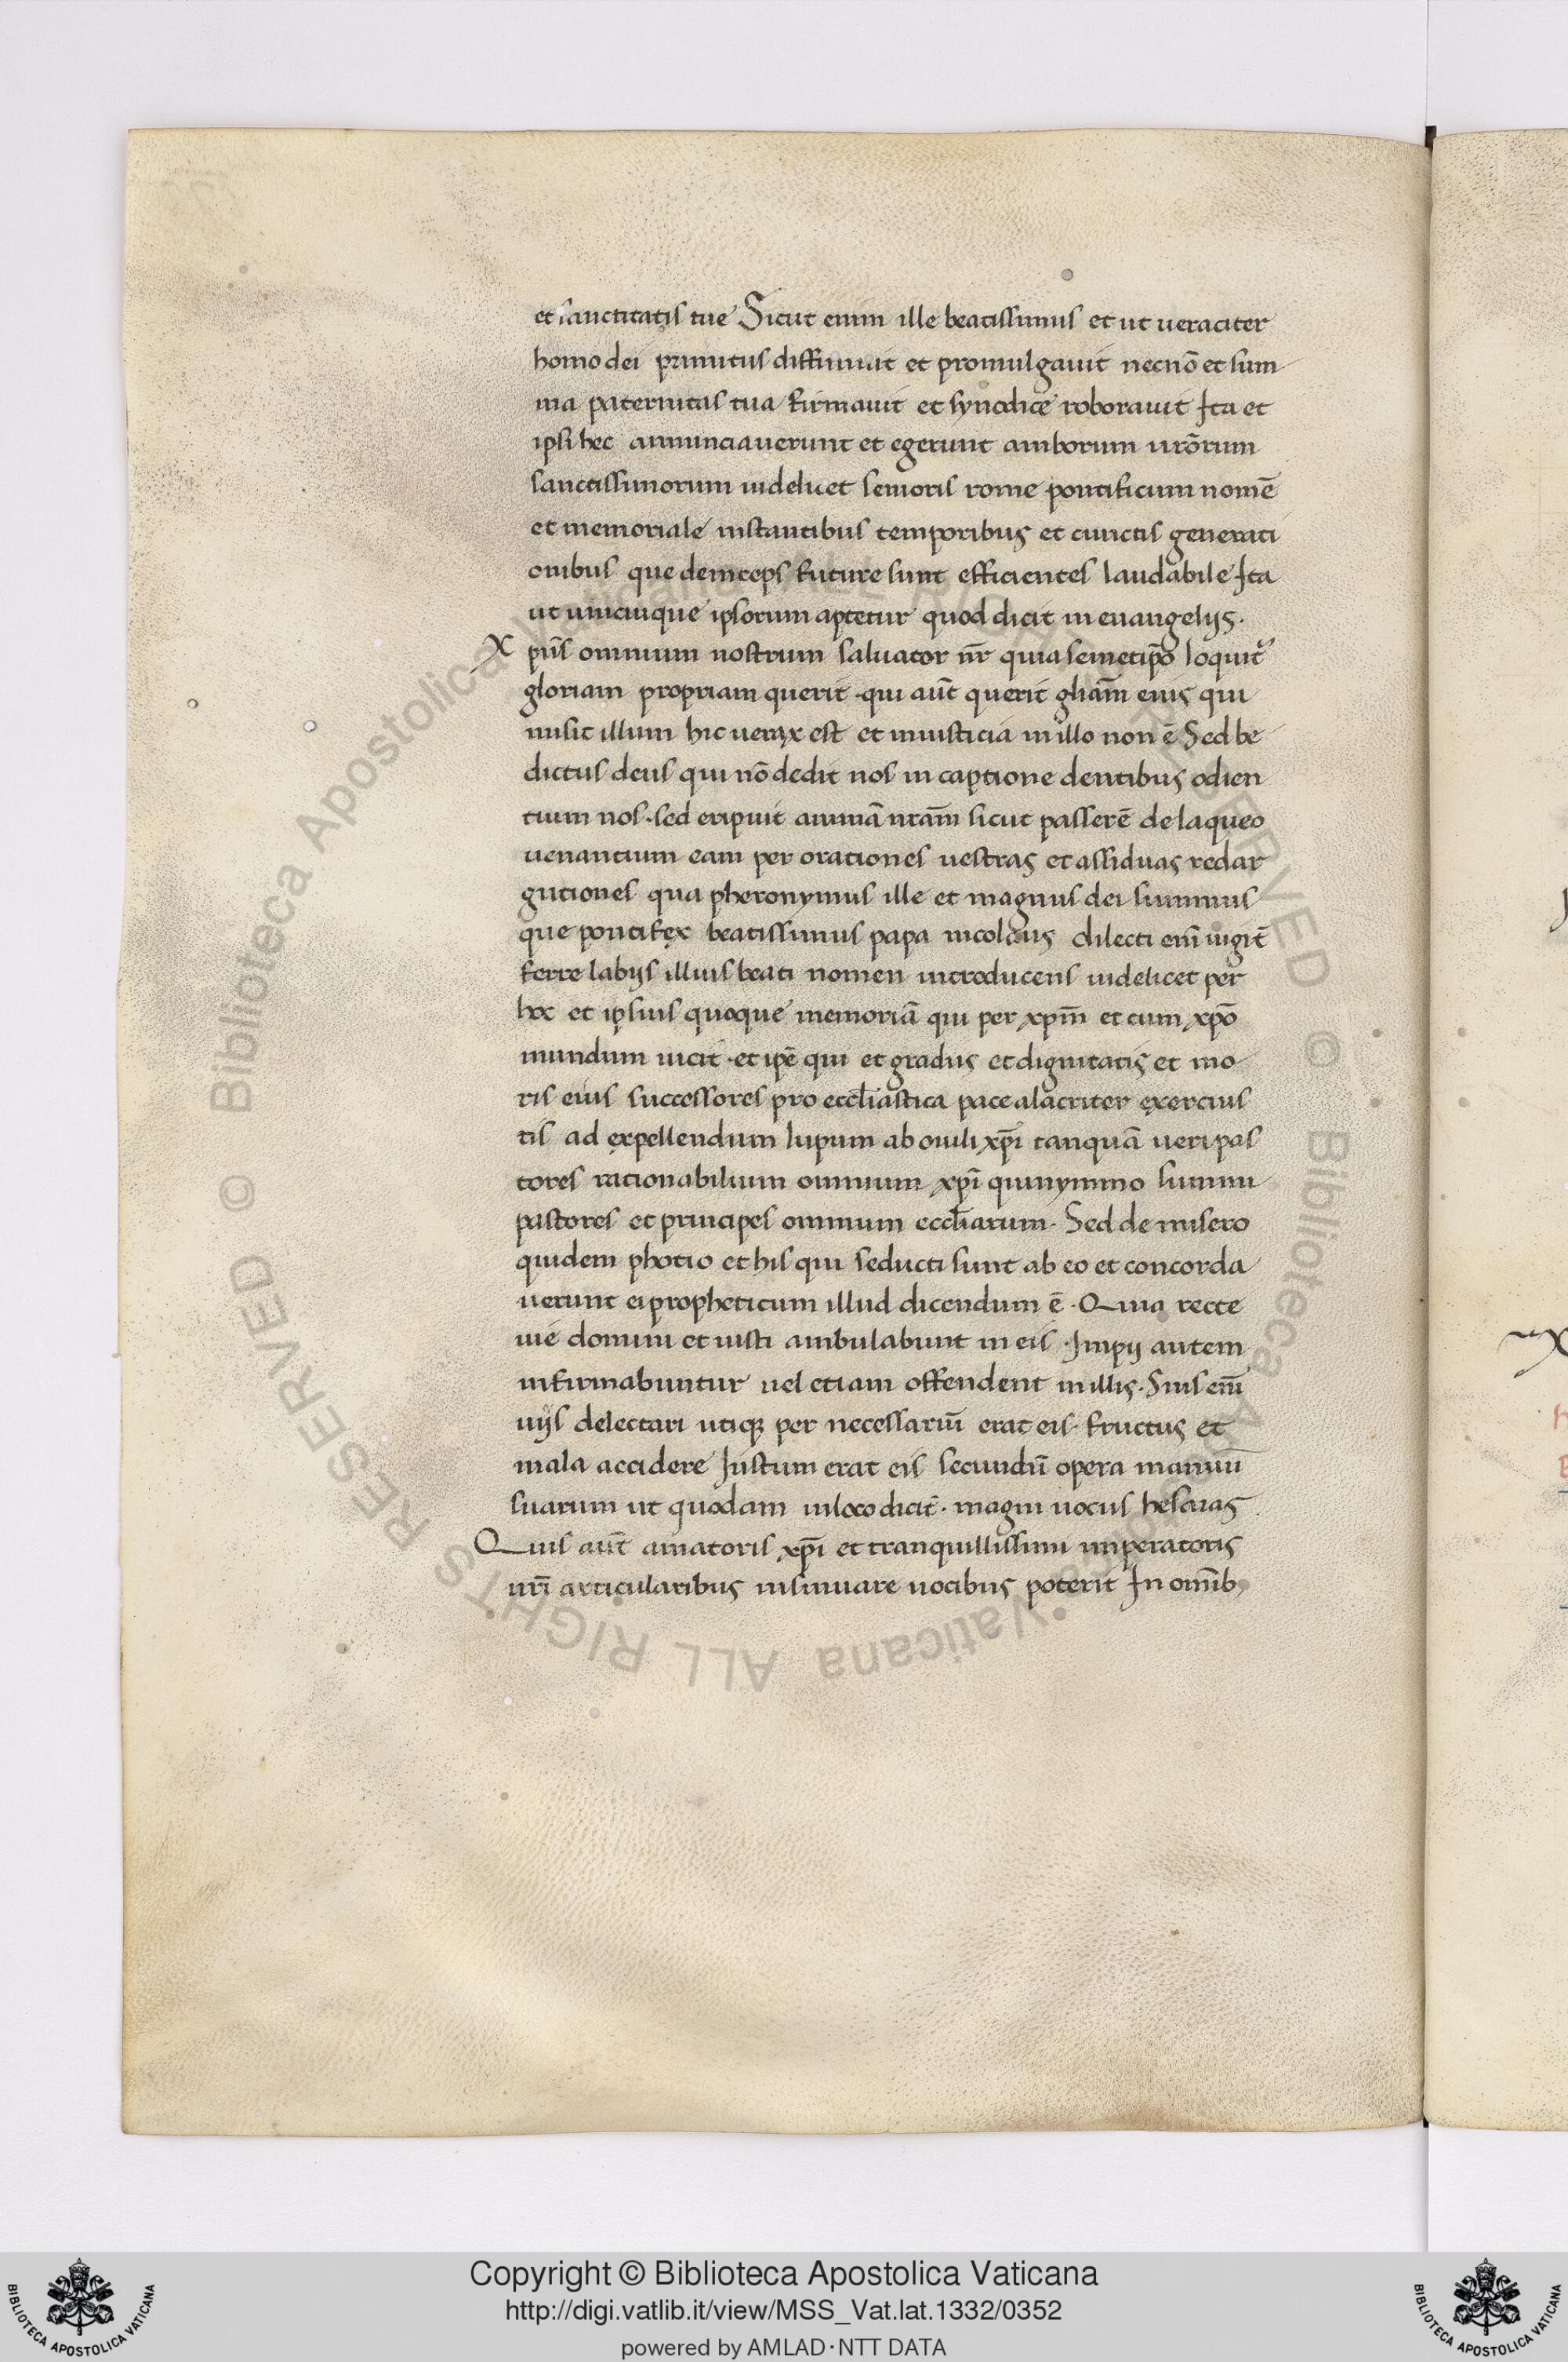 et sanctitatis tue Sicut enim ille beatissimus et ut ueraciter
homo dei primitus diffiniuit et promulgauit necnō et sum
ma paternitas tua firmauit et synodice roborauit Ita et
ipsi hec annunciauerunt et egerunt amborum urōrum
sanctissimorum uidelicet senioris rome pontificum nomē
et memoriale instantibus temporibus et cunctis generati
onibus que deinceps future sunt efficientes laudabile Ita
ut unicuique ipsorum aptetur quod dicit in euangelijs.
X pūs omnium nostrum saluator nr̄ quia semetip̄o loquit᷑
gloriam propriam querit · qui aūt querit gliām eius qui
misit illum hic uerax est et iniusticia in illo non ē Sed be
dictus deus qui nō dedit nos in captione dentibus odien
tium nos · sed eripuit animā nrām sicut passerē de laqueo
uenantium eam per orationes uestras et assiduas redar
gutiones qua pheronymus ille et magnus dei summus
que pontifex beatissimus papa nicolaus dilecti eni᷑ uigit̄
ferre labijs illius beati nomen introducens uidelicet per
hoc et ipsius quoque memoriā qui per xpm̄ et cum xpō
mundum uicit · et ip̄e qui et gradus et dignitatis et mo
ris eius successores pro eccl̄iastica pace alacriter exercius
tis ad expellendum lupum ab ouili xp̄i tanquā ueri pas
tores rationabilium omnium xpī quinymmo summi
pastores et principes omnium eccl̄iarum. Sed de misero
quidem photio et his qui seducti sunt ab eo et concorda
uerunt ei propheticum illud dicendum ē · Quia recte
uie domini et iusti ambulabunt in eis · Impij autem
infirmabuntur uel etiam offendent in illis. Suis eni᷑
uijs delectari utiqꝫ per necessariū erat eis fructus et
mala accidere Iustum erat eis secundū opera manuū
suarum ut quodam in loco dicit̄ · magni uocus hesaias
Quis aūt amatoris xp̄i et tranquillissimi imperatoris
nrī articularibus insinuare uocibus poterit In omīb,
Copyright © Biblioteca Apostolica Vaticana
http://digi.vatlib.it/view/MSS_Vat.lat.1332/0352
powered by AMLAD · NTT DATA